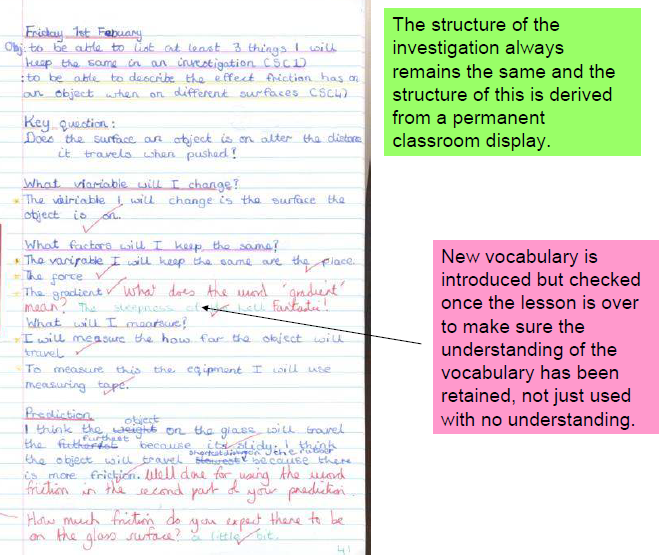 Friday 1st Febuary
Obj: to be able to list at least 3 things I will
keep the same in an investigation (SC1)
: to be able to describe the effect friction has on
an object when on different surfaces (SC4)
Key question:
Does the surface an object is on alter the distance
it travels when pushed?
What viariable will I change?
The vairiable I will change is the surface the
object is on.
What factors will I keep the same?
The varifable I will keep the same are the place.
The force
The gradient What does the word 'gradient'
mean? The steepness of a hill Fantastic!
What will I mearsure?
I will measure the how far the object will
travel
To measure this the eqipment I will use
measuring tape.
Prediction
object
I think the weight on the glass will travel
furthest
the because its slidy. I think
shortest distance on the rubber
the object will travel slowest because there
is more friction. Well done for using the word
friction in the second part of your prediction.
How much friction do you expect there to be
on the glass surface? a little bit.
The structure of the
investigation always
remains the same and the
structure of this is derived
from a permanent
classroom display.
New vocabulary is
introduced but checked
once the lesson is over
to make sure the
understanding of the
vocabulary has been
retained, not just used
with no understanding.